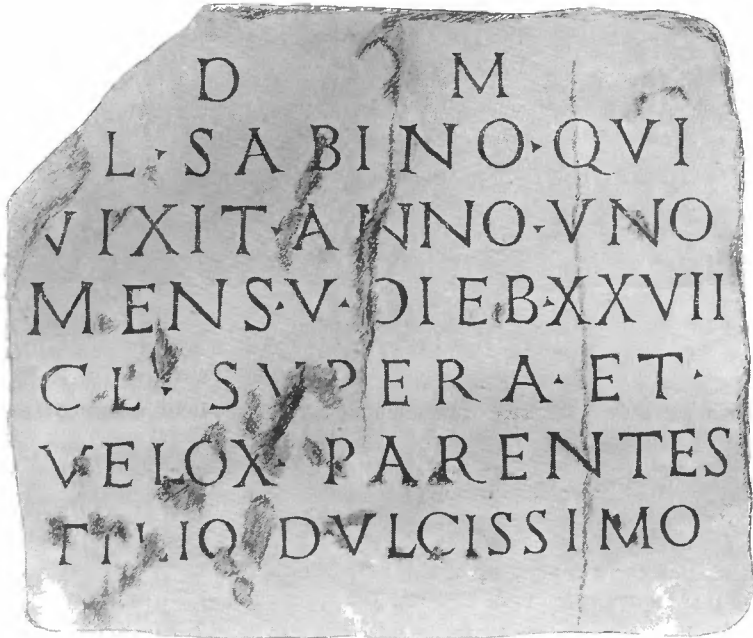 D M
L · SABINO · QVI
VIXIT · ANNO · VNO
MENS · V · DIEB · XXVII
CL · SVPERA · ET ·
VELOX · PARENTES
FILIO DVLCISSIMO